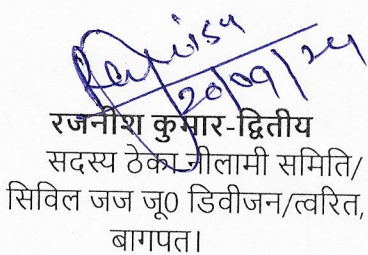 Rajnish
20/09/24
रजनीश कुमार-द्वितीय
सदस्य ठेका नीलामी समिति/
सिविल जज जू0 डिवीजन/त्वरित,
बागपत।